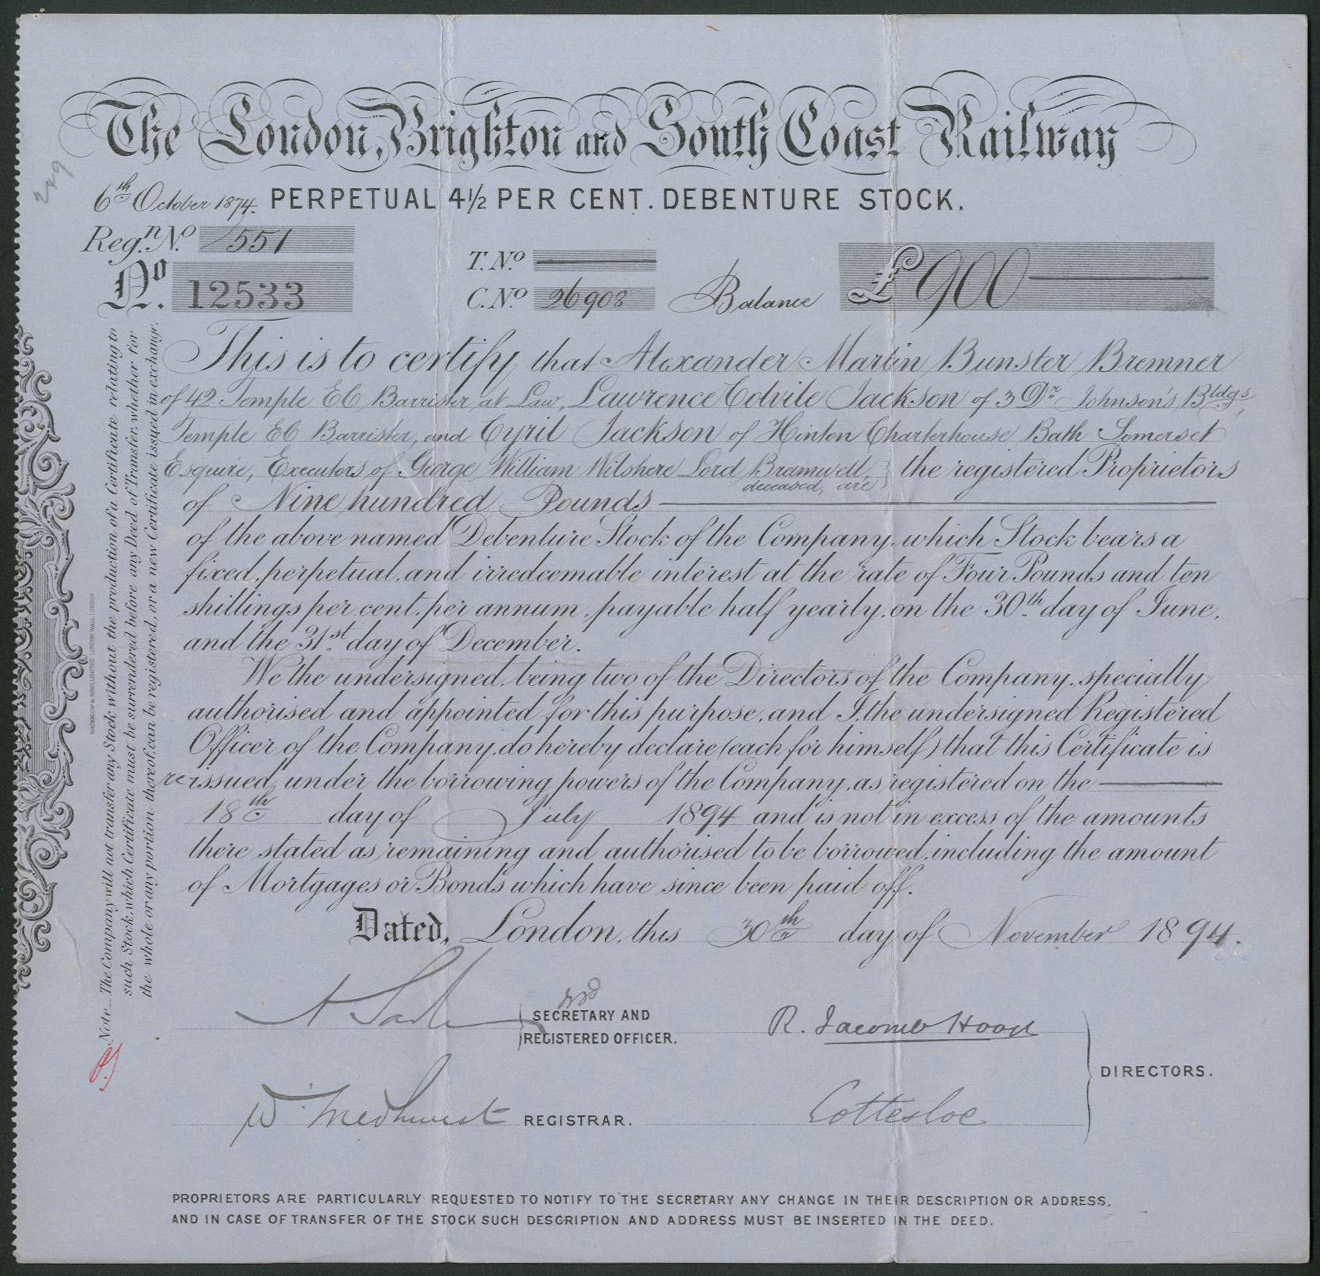 The London, Brighton and South Coast Railway
249
6th October 1874. PERPETUAL 4½ PER CENT. DEBENTURE STOCK.
Reg.n No. 551
No. 12533
T. No.
C. No. 26908 Balance £900
This is to certify that Alexander Martin Bunster Bremner
of 42 Temple EC Barrister at Law, Lawrence Colvile Jackson of 3 Dr Johnson's Bldgs,
Temple EC Barrister, and Cyril Jackson of Hinton Charterhouse Bath Somerset
Esquire, Executors of George William Wilshere Lord Bramwell deceased, are the registered Proprietors
of Nine hundred Pounds
of the above named Debenture Stock of the Company, which Stock bears a
fixed, perpetual, and irredeemable interest at the rate of Four Pounds and ten
shillings per cent. per annum, payable half yearly, on the 30th day of June,
and the 31st day of December.
We the undersigned, being two of the Directors of the Company, specially
authorised and appointed for this purpose, and I, the undersigned Registered
Officer of the Company, do hereby declare (each for himself) that this Certificate is
re-issued, under the borrowing powers of the Company, as registered on the
18th day of July 1894 and is not in excess of the amounts
there stated as remaining and authorised to be borrowed, including the amount
of Mortgages or Bonds which have since been paid off.
Dated, London, this 30th day of November 1894.
SECRETARY AND
REGISTERED OFFICER.
R. Jacomb Hood
DIRECTORS.
W. Medhurst REGISTRAR.
Cottesloe
PROPRIETORS ARE PARTICULARLY REQUESTED TO NOTIFY TO THE SECRETARY ANY CHANGE IN THEIR DESCRIPTION OR ADDRESS,
AND IN CASE OF TRANSFER OF THE STOCK SUCH DESCRIPTION AND ADDRESS MUST BE INSERTED IN THE DEED.
Note.—The Company will not transfer any Stock without the production of a Certificate relating to
such Stock, which Cerificate must be surrendered before any Deed of Transfer, whether for
the whole or any portion thereof, can be registered, or a new Certificate issued in exchange.